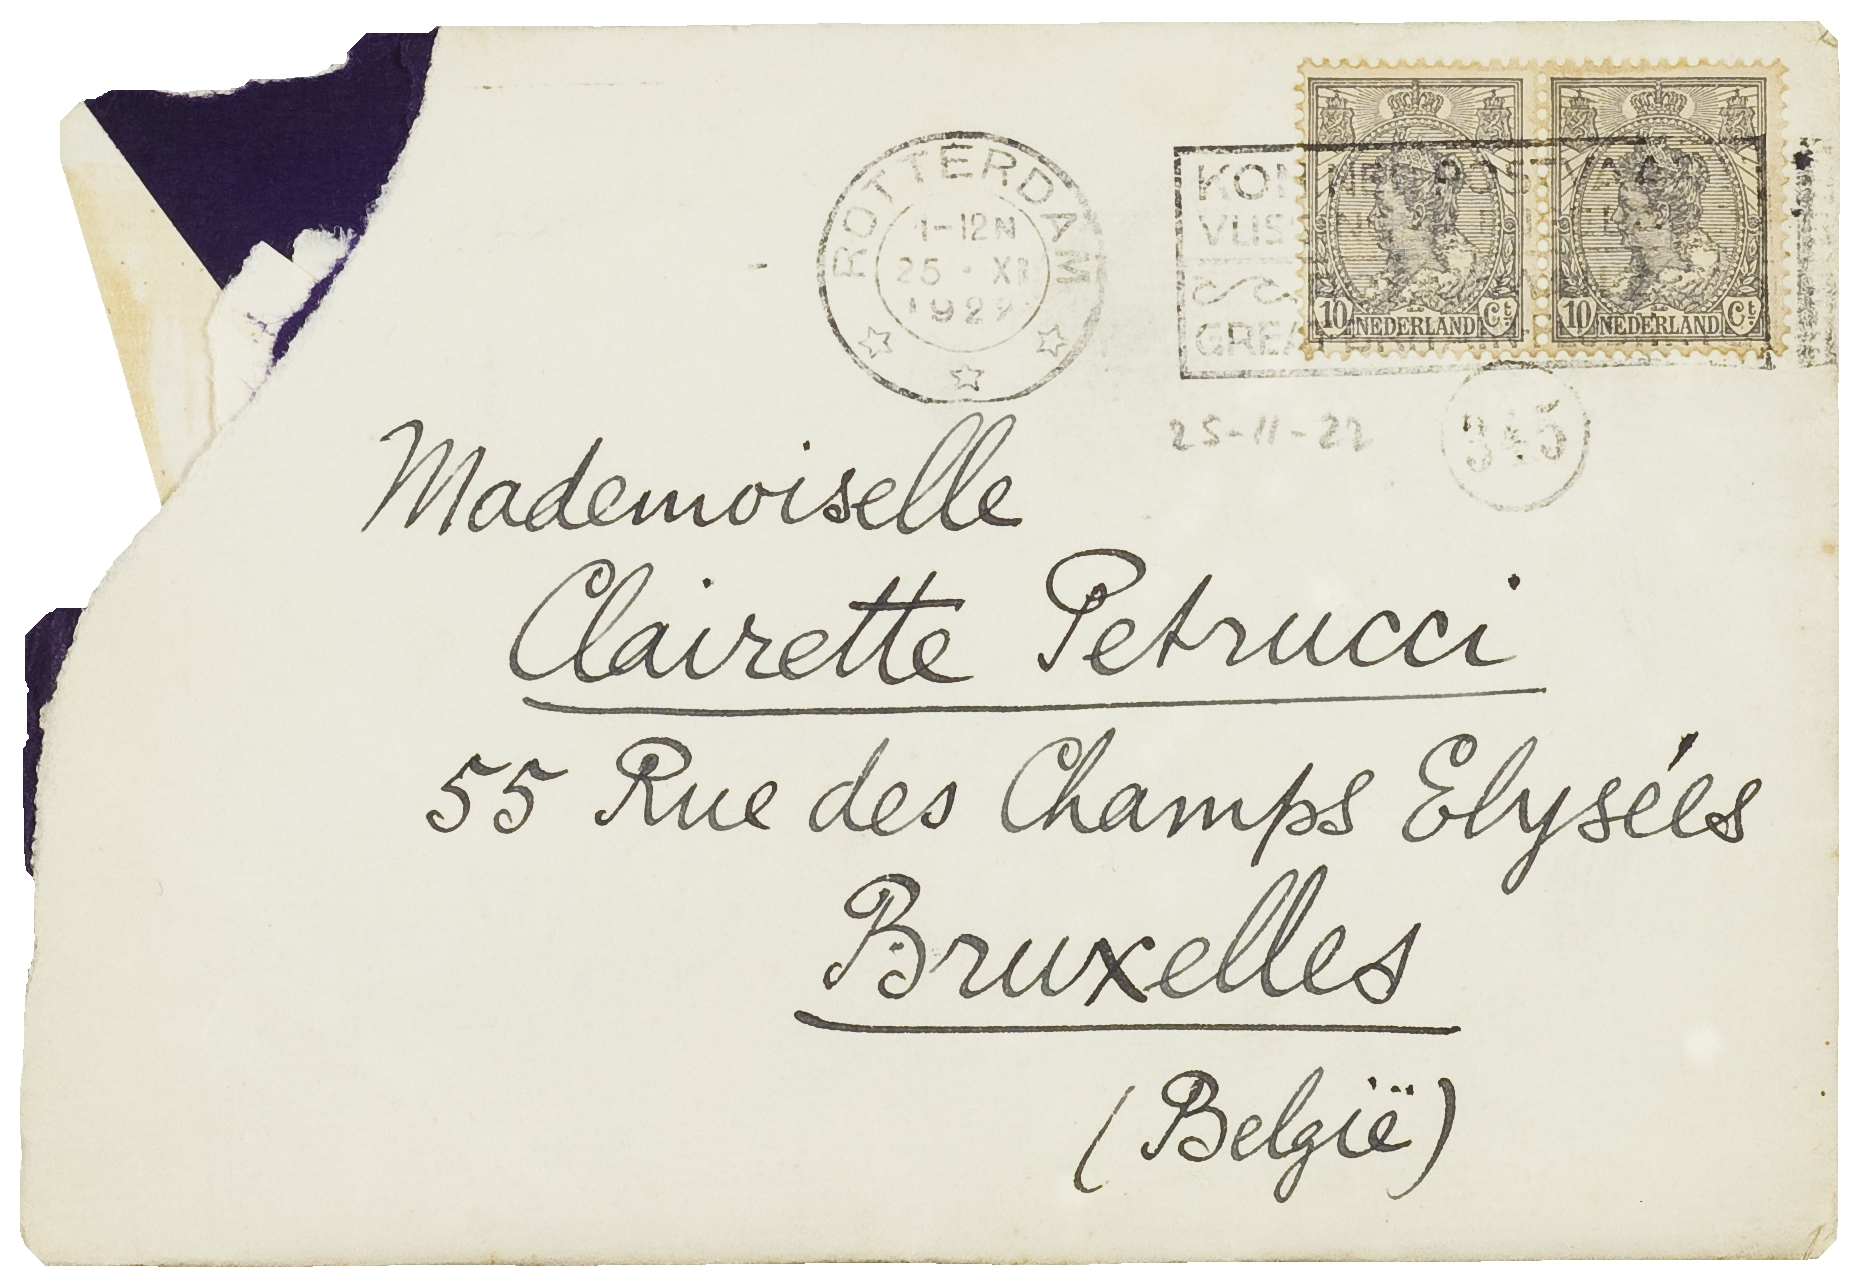 ROTTERDAM
1-12N
25 · XI
1922
10 NEDERLAND Ct
10 NEDERLAND Ct
25-11-22
345
Mademoiselle
Clairette Petrucci
55 Rue des Champs Elysées
Bruxelles
(België)